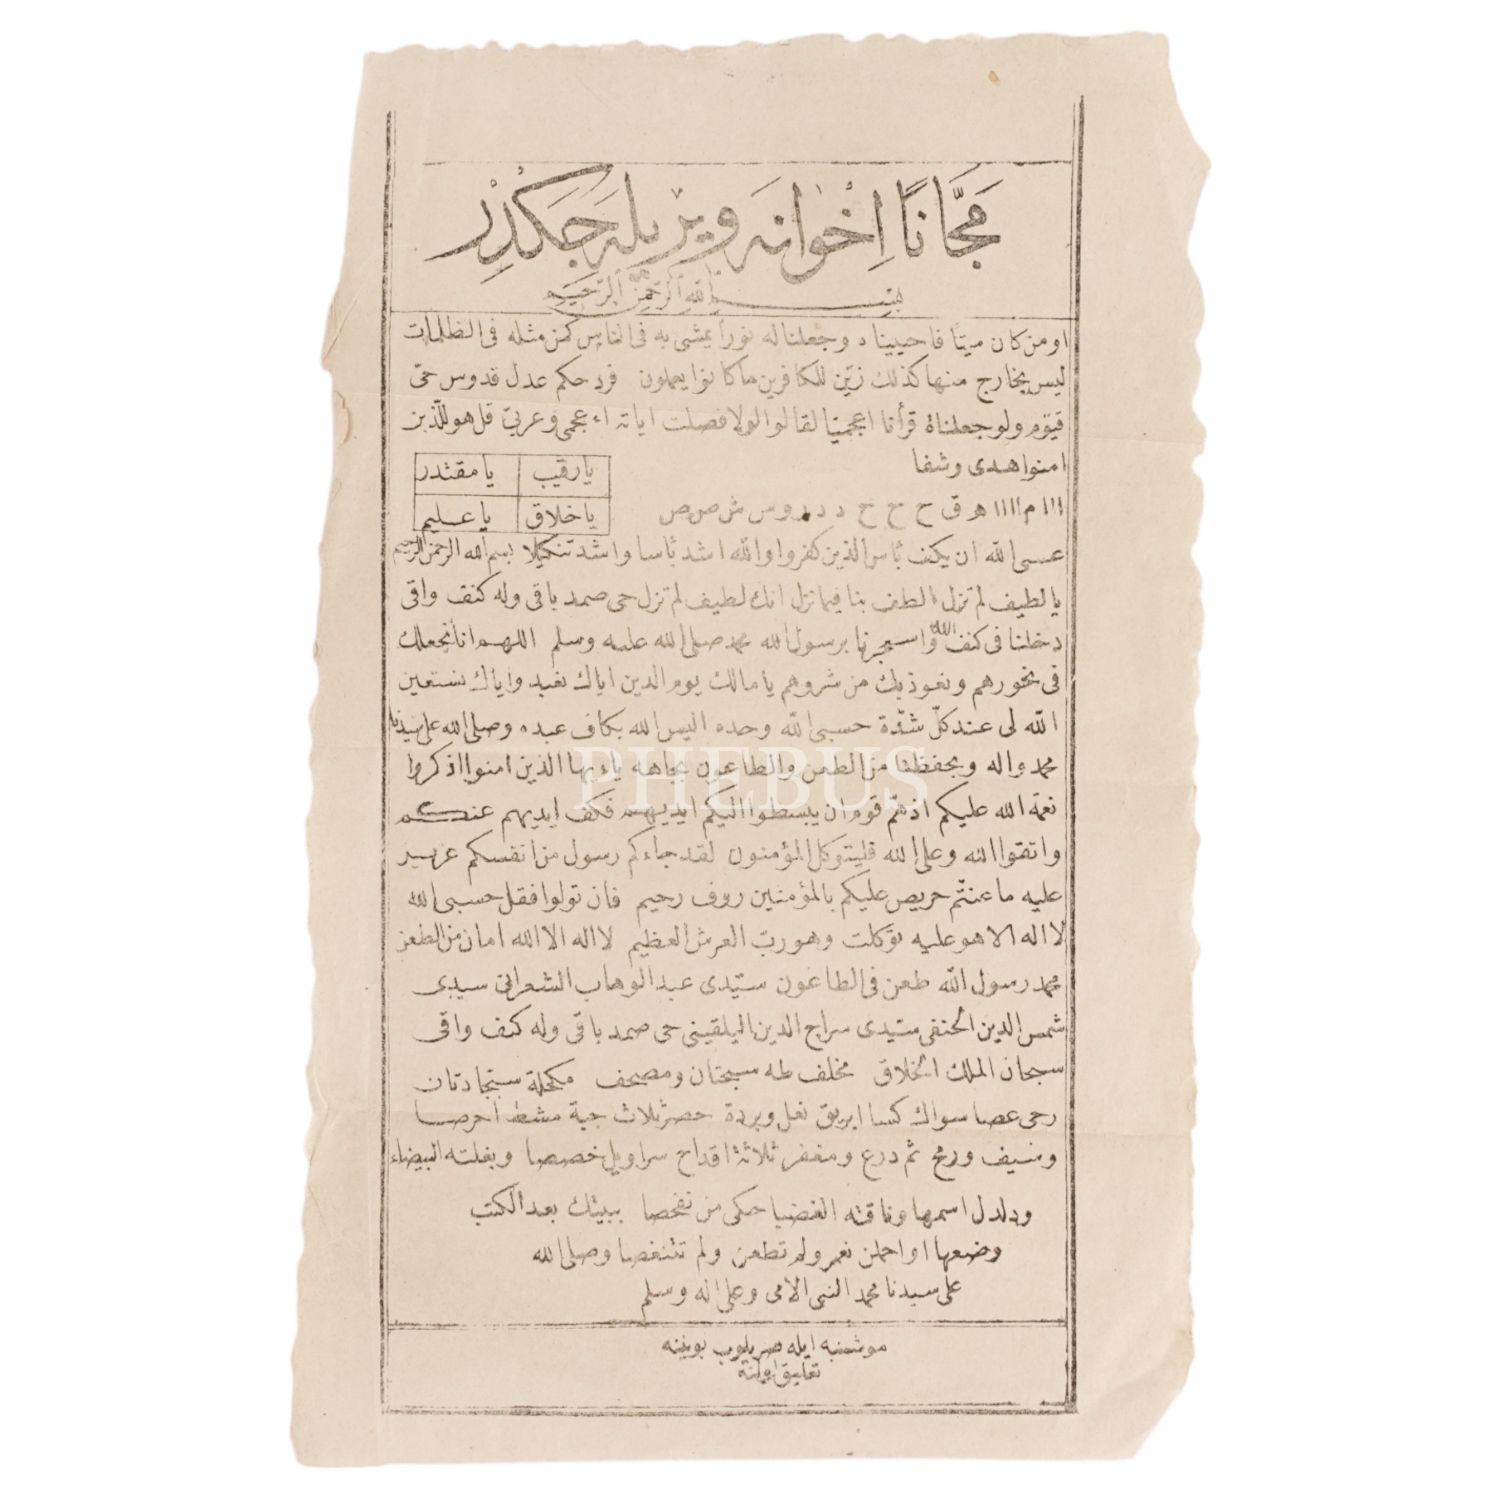 مَجَّانًا اِخْوانَه ويريله جَكْدِرْ
بسم الله الرحمن الرحيم
او من كان ميتا فاحييناه وجعلنا له نورا يمشى به فى الناس كمن مثله فى الظلمات
ليس بخارج منها كذلك زيّن للكافرين ما كانوا يعملون فرد حكم عدل قدوس حىّ
قيّوم ولو جعلناه قرأنا اعجميّا لقالوا لولا فصلت اياته اء عجمى وعربىّ قل هو للّذين
امنوا هدى وشفا
يا رقيب يا مقتدر
يا خلاق يا عليم
ااا م اااا ه ق ح ح ح د د د و س ش ص ص
عسى الله ان يكف بأس الذين كفروا والله اشد بأسا واشد تنكيلا بسم الله الرحمن الرحيم
يا لطيف لم تزل الطف بنا فيما نزل انك لطيف لم تزل حى صمد باقى وله كنف واقى
دخلنا فى كنف الله واستجرنا برسول الله محمد صلى الله عليه وسلم اللهم انا نجعلك
فى نحورهم ونعوذ بك من شرورهم يا مالك يوم الدين اياك نعبد واياك نستعين
الله لى عند كلّ شدّة حسبى الله وحده اليس الله بكاف عبده وصلى الله على سيدنا
محمد واله ويحفظنا من الطعن والطاعون بجاهه يا ايها الذين امنوا اذكروا
نعمة الله عليكم اذ همّ قوم ان يبسطوا اليكم ايديهم فكف ايديهم عنكم
واتقوا الله وعلى الله فليتوكل المؤمنون لقد جاءكم رسول من انفسكم عزيز
عليه ما عنتّم حريص عليكم بالمؤمنين روف رحيم فان تولوا فقل حسبى الله
لا اله الا هو عليه توكلت وهو ربّ العرش العظيم لا اله الا الله امان من الطعن
محمد رسول الله طعن فى الطاعون سيّدى عبد الوهاب الشعرانى سيدى
شمس الدين الحنفى سيّدى سراج الدين البلقينى حى صمد باقى وله كنف واقى
سبحان الملك الخلاق مخلف طه سبحتان ومصحف مكحلة سجّادتان
رحى عصا سواك كسا ابريق نعل وبردة حصر ثلاث جبة مشط احرصا
وسيف ورمح ثم درع ومغفر ثلاثة اقداح سراويل خصصا وبغلته البيضاء
ودلدل اسمها وناقته الغضبا حكى من تفحصا ببيتك بعد الكتب
وضعها او احملن نعمر ولم تطعن ولم تتنغصا وصلى الله
على سيدنا محمد النبى الامى وعلى اله وسلم
موشنبه ايله صريلوب بوينه
تعليق اولنه
PHEBUS